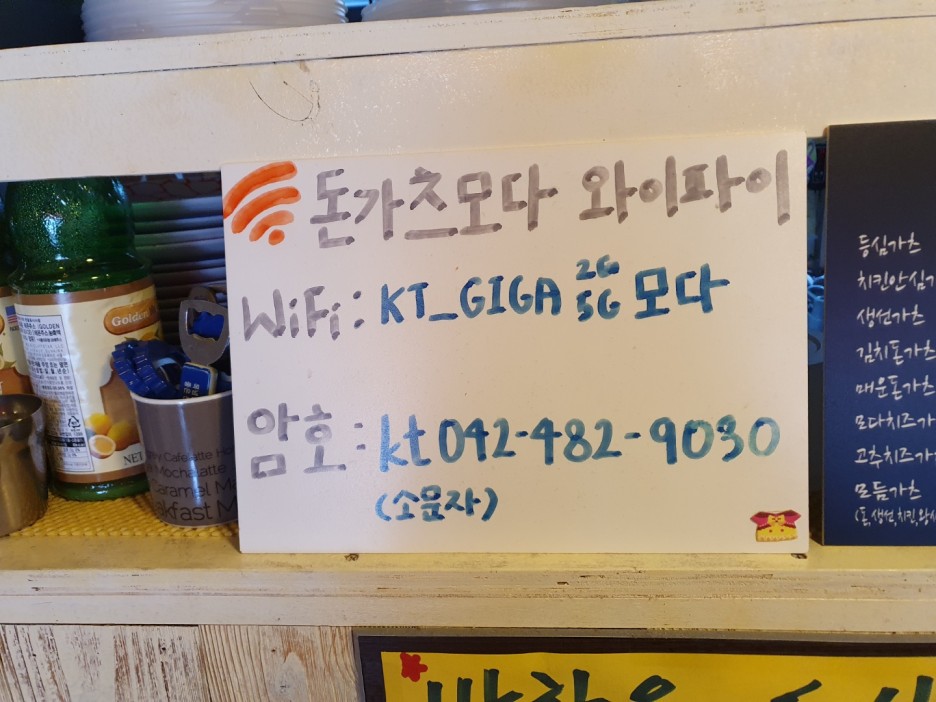 돈가츠모다 와이파이
WiFi: KT_GIGA 2G 5G 모다
암호: kt042-482-9030
(소문자)
Golden
NET
Cafelatte
Mochalatte
Caramel
fast
등심가츠
치킨안심가
생선가츠
김치돈가츠
매운돈가츠
모다치즈가
고추치즈가
모듬가츠
(돈,생선,치킨,왕새